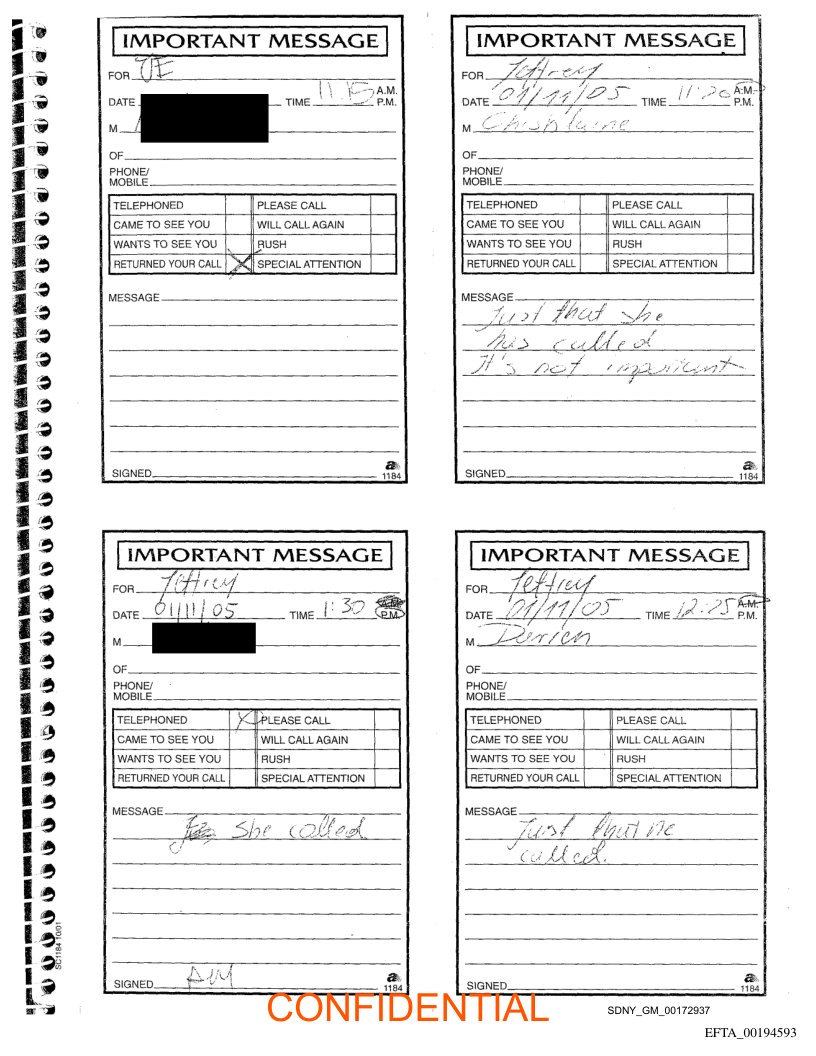 IMPORTANT MESSAGE
FOR JE
DATE TIME 11.15 A.M.
P.M.
M
OF
PHONE/
MOBILE
TELEPHONED PLEASE CALL
CAME TO SEE YOU WILL CALL AGAIN
WANTS TO SEE YOU RUSH
RETURNED YOUR CALL X SPECIAL ATTENTION
MESSAGE
SIGNED
a
1184
IMPORTANT MESSAGE
FOR Jeffrey
DATE 01/11/05 TIME 11:20 A.M.
P.M.
M Ghishlaine
OF
PHONE/
MOBILE
TELEPHONED PLEASE CALL
CAME TO SEE YOU WILL CALL AGAIN
WANTS TO SEE YOU RUSH
RETURNED YOUR CALL SPECIAL ATTENTION
MESSAGE
Just that she
has called
It's not important
SIGNED
a
1184
IMPORTANT MESSAGE
FOR Jeffrey
DATE 01/11/05 TIME 1:30 A.M.
P.M.
M
OF
PHONE/
MOBILE
TELEPHONED X PLEASE CALL
CAME TO SEE YOU WILL CALL AGAIN
WANTS TO SEE YOU RUSH
RETURNED YOUR CALL SPECIAL ATTENTION
MESSAGE
She called
SIGNED AM
a
1184
IMPORTANT MESSAGE
FOR Jeffrey
DATE 01/11/05 TIME 12:25 A.M.
P.M.
M Derien
OF
PHONE/
MOBILE
TELEPHONED PLEASE CALL
CAME TO SEE YOU WILL CALL AGAIN
WANTS TO SEE YOU RUSH
RETURNED YOUR CALL SPECIAL ATTENTION
MESSAGE
Just that he
called.
SIGNED
a
1184
SC1184 10/01
CONFIDENTIAL
SDNY_GM_00172937
EFTA_00194593